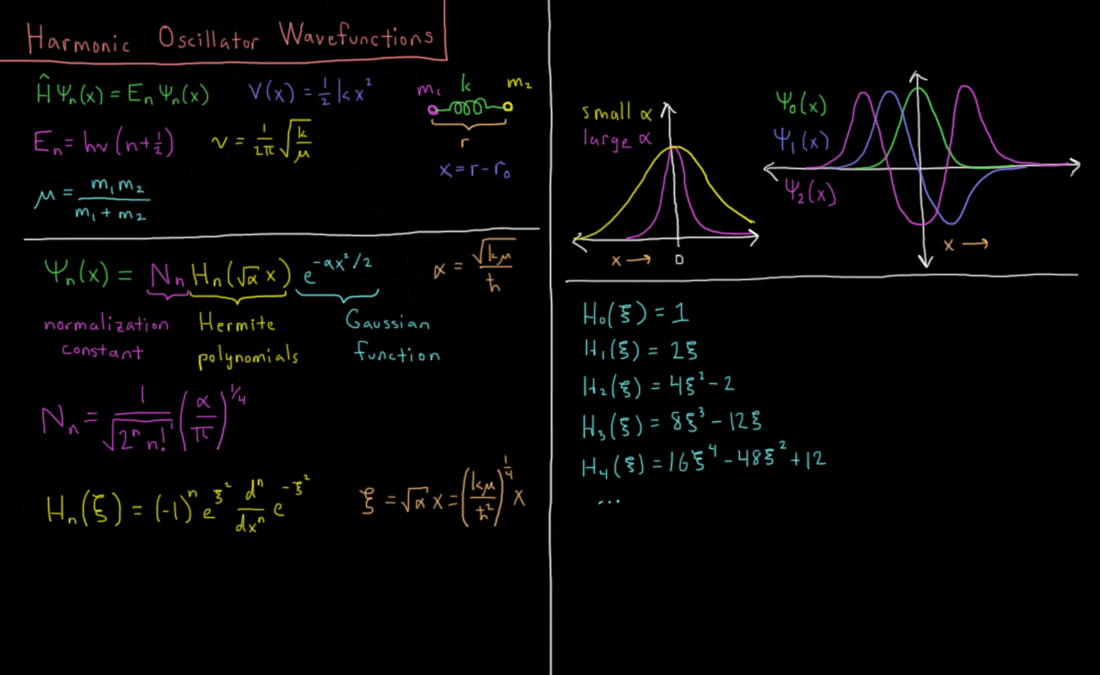 Harmonic Oscillator Wavefunctions
Ĥ Ψₙ(x) = Eₙ Ψₙ(x)
V(x) = ½ k x²
Eₙ = hν (n + ½)
ν = 1/2π √(k/μ)
μ = m₁ m₂ / m₁ + m₂
m₁ k m₂
r
x = r - r₀
Ψₙ(x) = Nₙ Hₙ(√α x) e^(-αx²/2)
α = √kμ / ħ
normalization constant
Hermite polynomials
Gaussian function
Nₙ = 1/√(2ⁿ n!) (α/π)^(1/4)
Hₙ(ξ) = (-1)ⁿ e^(ξ²) dⁿ/dxⁿ e^(-ξ²)
ξ = √α x = (kμ/ħ²)^(1/4) x
small α
large α
x → 0
Ψ₀(x)
Ψ₁(x)
Ψ₂(x)
x →
H₀(ξ) = 1
H₁(ξ) = 2ξ
H₂(ξ) = 4ξ² - 2
H₃(ξ) = 8ξ³ - 12ξ
H₄(ξ) = 16ξ⁴ - 48ξ² + 12
...